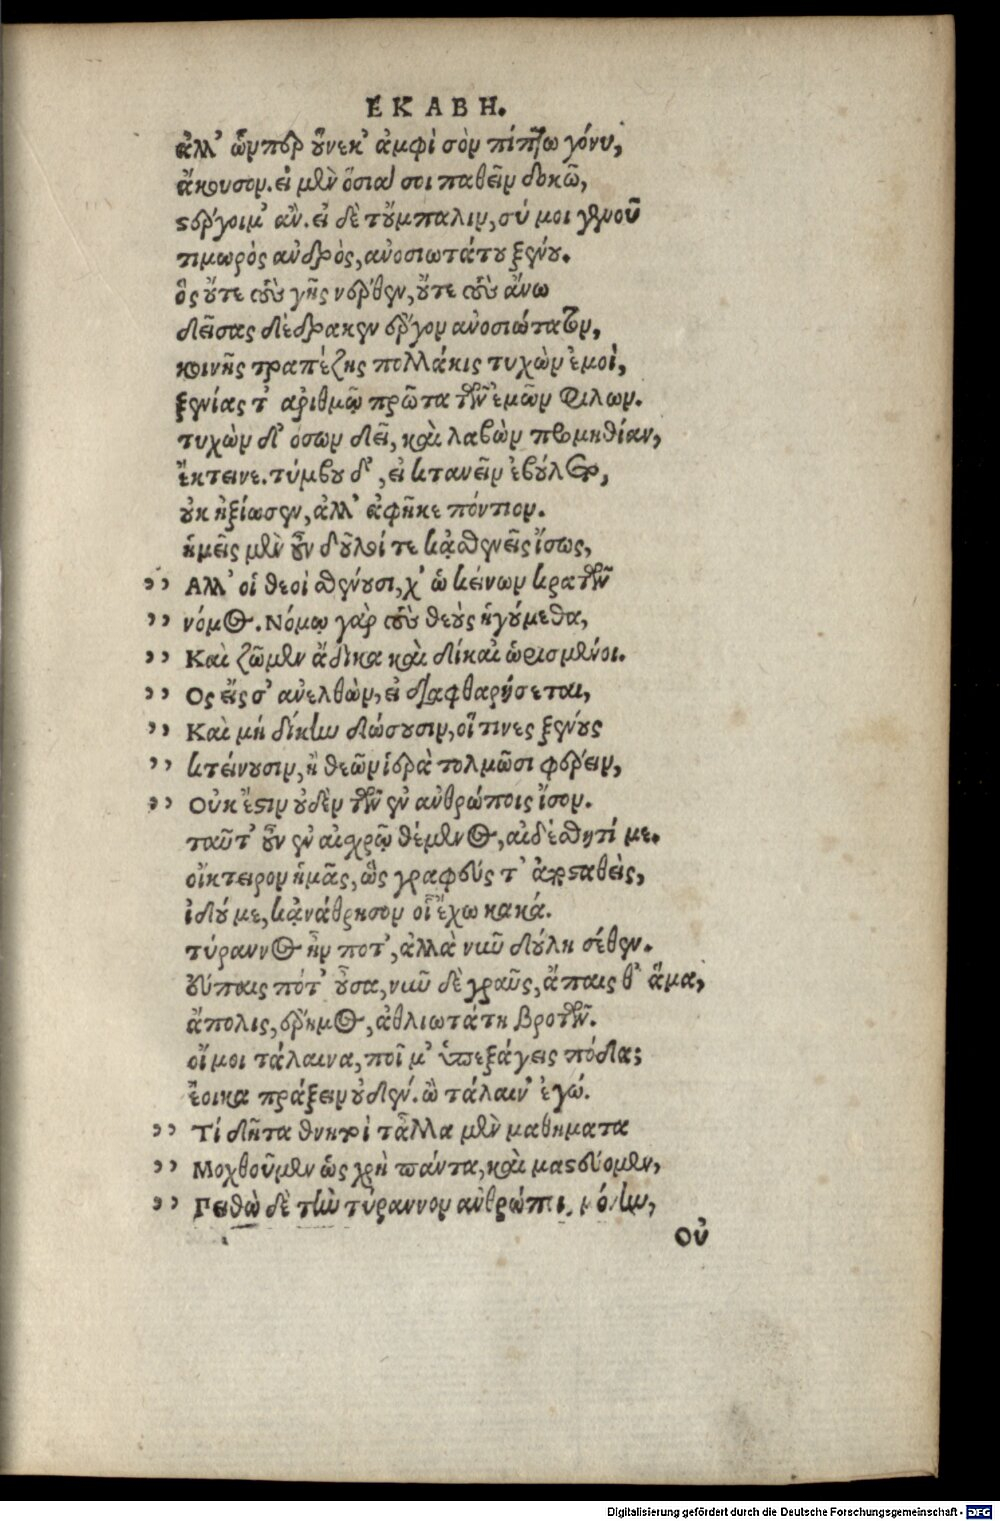 ΕΚΑΒΗ.
ἀλλ' ὧνπερ οὕνεκ' ἀμφὶ σὸν πίπτω γόνυ,
ἄκουσον. εἰ μὲν ὅσιά σοι παθεῖν δοκῶ,
στέργοιμ' ἄν. εἰ δὲ τοὔμπαλιν, σύ μοι γενοῦ
τιμωρὸς ἀνδρὸς, ἀνοσιωτάτου ξένου.
ὃς οὔτε τοὺς γῆς νέρθεν, οὔτε τοὺς ἄνω
δείσας δέδρακεν ἔργον ἀνοσιώτατον,
κοινῆς τραπέζης πολλάκις τυχὼν ἐμοὶ,
ξενίας τ' ἀριθμῷ πρῶτα τῶν ἐμῶν φίλων.
τυχὼν δ' ὅσων δεῖ, καὶ λαβὼν προμηθίαν,
ἔκτεινε. τύμβου δ', εἰ κτανεῖν ἐβούλετο,
οὐκ ἠξίωσεν, ἀλλ' ἀφῆκε πόντιον.
ἡμεῖς μὲν οὖν δοῦλοί τε κἀσθενεῖς ἴσως,
,, Αλλ' οἱ θεοὶ σθένουσι, χ' ὁ κείνων κρατῶν
,, νόμος. Νόμῳ γὰρ τοὺς θεοὺς ἡγούμεθα,
,, Καὶ ζῶμεν ἄδικα καὶ δίκαι' ὡρισμένοι.
,, Ος εἴς σ' ἀνελθὼν, εἰ διαφθαρήσεται,
,, Καὶ μὴ δίκην δώσουσιν, οἵ τινες ξένους
,, κτείνουσιν, ἢ θεῶν ἱερὰ τολμῶσι φέρειν,
,, Οὐκ ἔστιν οὐδὲν τῶν ἐν ἀνθρώποις ἴσον.
ταῦτ' οὖν ἐν αἰσχρῷ θέμενος, αἰδέσθητί με.
οἴκτειρον ἡμᾶς, ὡς γραφεύς τ' ἀποσταθεὶς,
ἰδού με, κἀνάθρησον οἷ' ἔχω κακά.
τύραννος ἦν ποτ', ἀλλὰ νῦν δούλη σέθεν.
εὔπαις πότ' οὖσα, νῦν δὲ γραῦς, ἄπαις θ' ἅμα,
ἄπολις, ἔρημος, ἀθλιωτάτη βροτῶν.
οἴμοι τάλαινα, ποῖ μ' ὑπεξάγεις πόδα;
ἔοικα πράξειν οὐδέν. ὦ τάλαιν' ἐγώ.
,, Τί δῆτα θνητοὶ τἆλλα μὲν μαθήματα
,, Μοχθοῦμεν ὡς χρὴ πάντα, καὶ μαστεύομεν,
,, Πειθὼ δὲ τὴν τύραννον ἀνθρώποις μόνην,
Οὐ
Digitalisierung gefördert durch die Deutsche Forschungsgemeinschaft - DFG